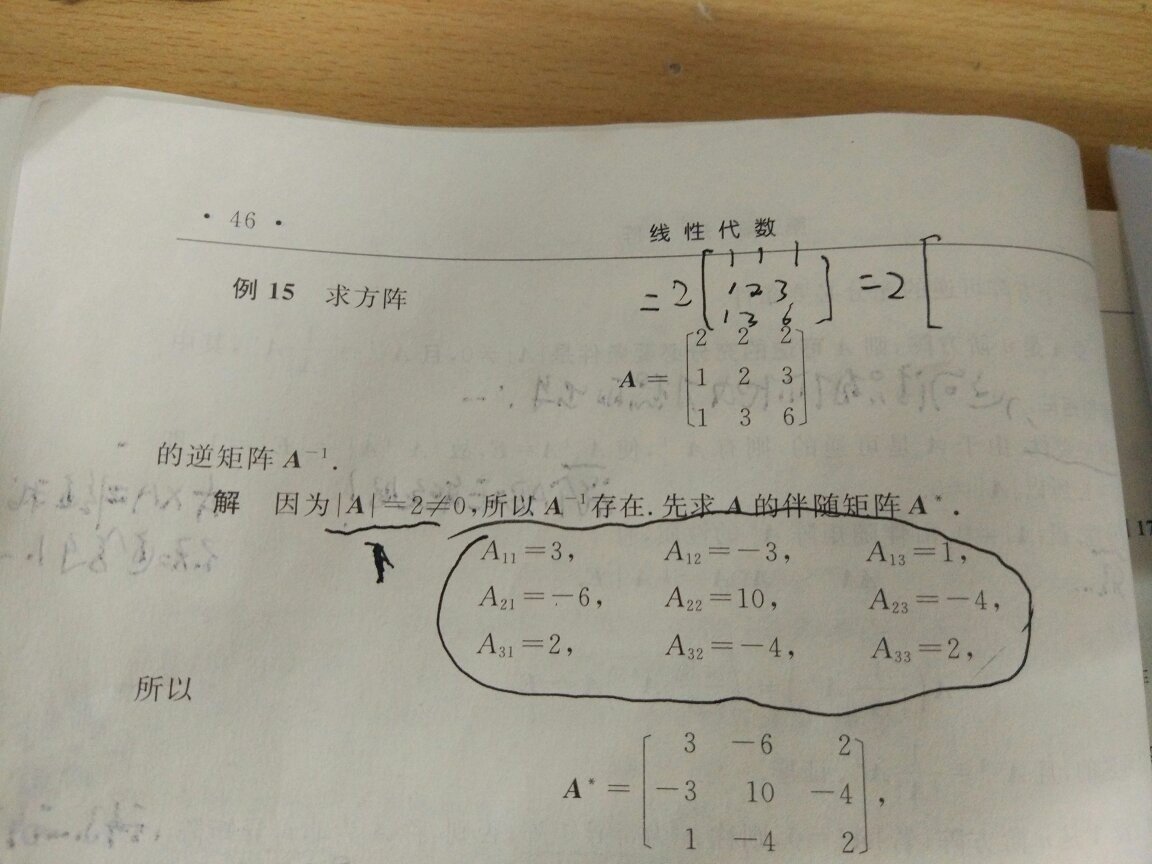 · 46 ·
线性代数
= 2 [ 1 1 1
1 2 3
1 3 6 ] = 2 [
例 15 求方阵
A = [ 2 2 2
1 2 3
1 3 6 ]
的逆矩阵 A⁻¹.
解 因为|A|=2≠0,所以 A⁻¹存在.先求 A 的伴随矩阵 A*.
A₁₁=3, A₁₂=-3, A₁₃=1,
A₂₁=-6, A₂₂=10, A₂₃=-4,
A₃₁=2, A₃₂=-4, A₃₃=2,
所以
A* = [ 3 -6 2
-3 10 -4
1 -4 2 ],
17